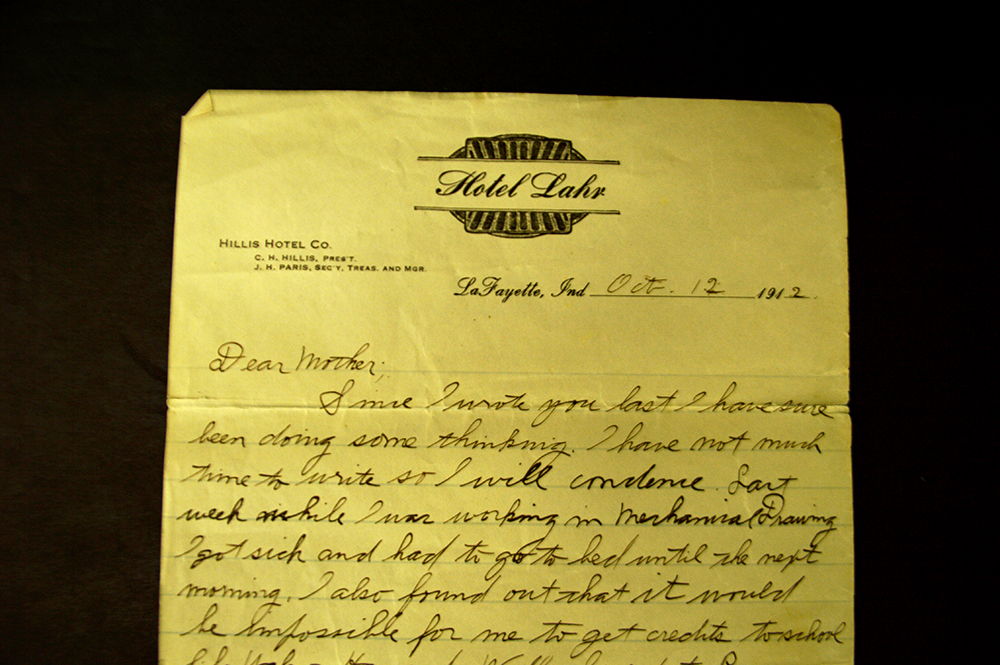 Hotel Lahr
HILLIS HOTEL CO.
C. H. HILLIS, PRES'T.
J. H. PARIS, SEC'Y, TREAS. AND MGR.
LaFayette, Ind Oct. 12 1912.
Dear Mother;
Since I wrote you last I have sure
been doing some thinking. I have not much
time to write so I will condence. Last
week while I was working in Mechanical Drawing
I got sick and had to go to bed until the next
morning. I also found out that it would
be impossible for me to get credits to school